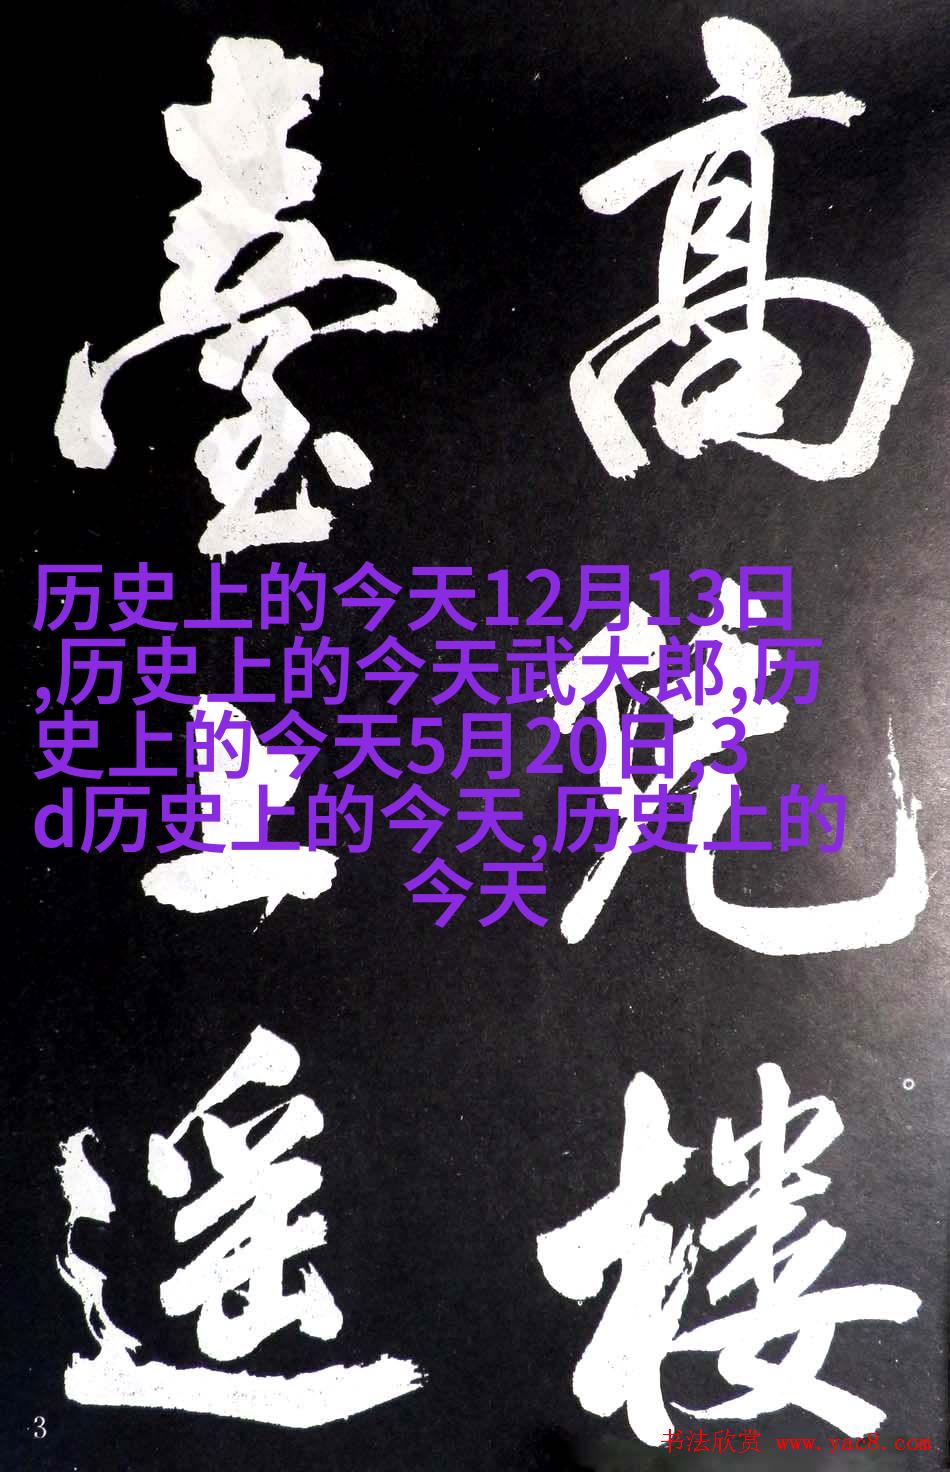 高
楼
臺上遥
历史上的今天12月13日
,历史上的今天武大郎,历
史上的今天5月20日,3
d历史上的今天,历史上的
今天
3
书法欣赏 www.yac8.com